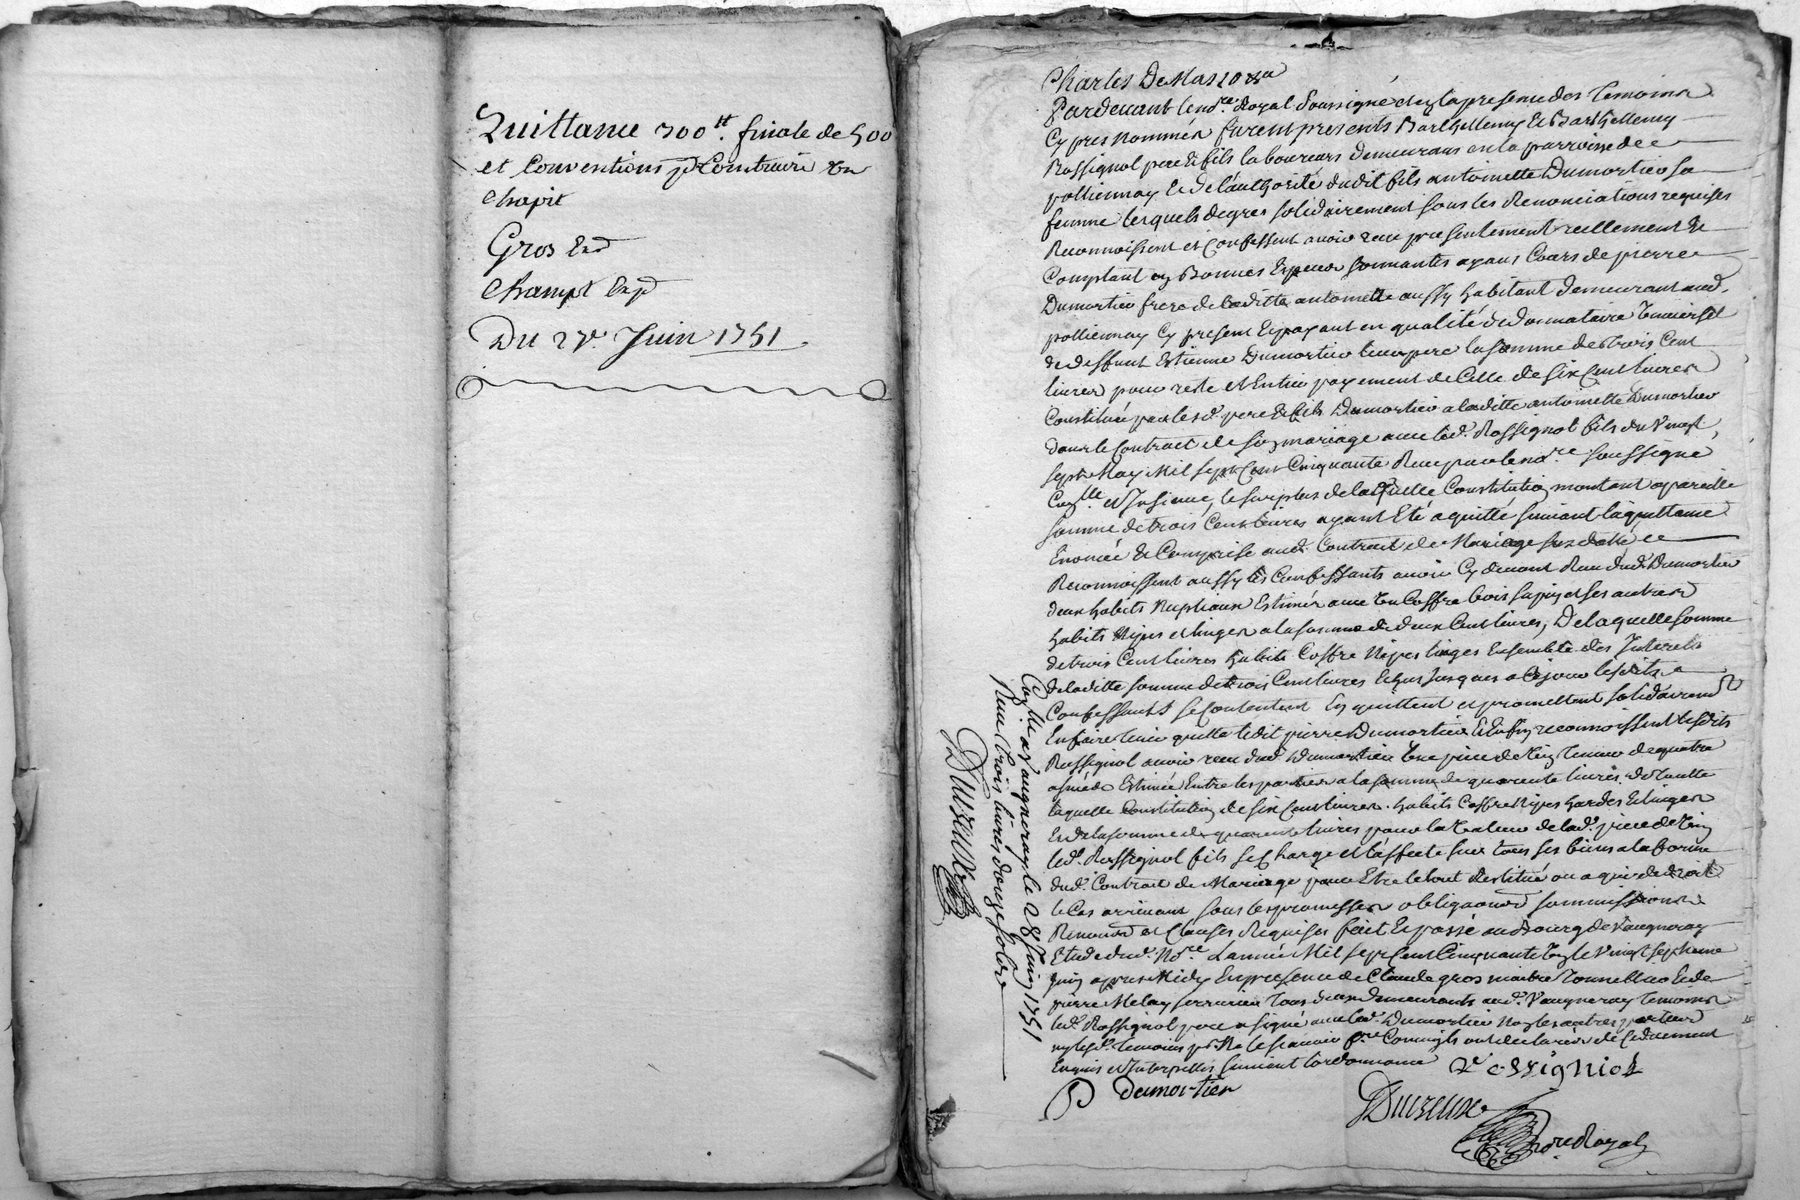 Quittance 300 tt finale de 500
et Conventions
Chapit
Gros Exp
Champt Exp
Du 27e Juin 1751
Pardevant le no.re Royal Soussigné et en la presence des temoins
Cy pres nommés furent presents Barthellemy et Barthellemy
Rossignol pere et fils laboureurs demeurans en la parroisse de
pollionnay et de l'authorité dudit fils antoinette Dumortier sa
femme lesquels de gres solidairement sous les Renonciations requises
Reconnoissent et Confessent avoir receu presentement reellement et
Comptant en Bonnes Especes sonnantes ayans Cours de pierre
Dumortier frere de laditte antoinette aussy habitant demeurant aud.
pollionnay Cy present et payant en qualité de donnataire universel
de deffunt Estienne Dumortier leur pere la somme de trois Cent
livres pour reste et Entier payement de Celle de six Cent livres
Constituée par lesd. pere et fils Dumortier a laditte antoinette Dumortier
dans le Contract de son mariage avec led. Rossignol fils du vingt
sept May Mil sept Cent Cinquante Receu par le no.re soussigné
Con.llé et Insinué, le surplus de laquelle Constitution montant a pareille
somme de trois Cent livres ayant Eté aquitté suivant la quittance
Enoncée et Comprise aud. Contract de Mariage susdatté
Reconnoissent aussy les Confessants avoir Cy devant Receu dud. Dumortier
deux habits Nuptiaux Estimés avec un Coffre bois sapin et ses autres
habits Nipes et linges a la somme de deux Cent livres, De laquelle somme
de trois Cent livres habits Coffre Nipes linges Ensemble des Interets
de laditte somme de trois Cent livres Echus Jusques a Ce jour lesdits
Confessants se Contentent En quittent et promettent solidairement
En faire tenir quitte ledit pierre Dumortier Et Enfin reconnoissent lesdits
Rossignol avoir receu dud. Dumortier une piece de vin tenant de quatre
asnées Estimée Entre les parties a la somme de quarente livres. de toutte
laquelle Constitution de six Cent livres. habits Coffre Nipes hardes Et linges
Et de la somme de quarente livres pour la valeur de lad. piece de vin
led. Rossignol fils se Charge et l'affecte sur tous ses biens a la forme
dud. Contract de Mariage pour Etre le tout Restitué ou a qui de droit
le Cas arrivant sous les promesses obligaons soummissions
Renonons et Clauses Requises fait Et passé au Bourg de Vaugneray
Etude dud. No.re L'année Mil sept Cent Cinquante un le vingt septieme
Juin apres Midy En presence de Claude gros maitre tonnellier Et de
pierre Melay serrurier tous deux demeurants aud. Vaugneray temoins
led. Rossignol pere a signé avec led. Dumortier Non les autres parties
ny lesd. temoins
Enquis et Interpellés suivant l'ordonnance
P Demortier
Rossigniol
Ducreux
No.re Royal
Con.llé a Vaugneray le 28 Juin 1751
Receu trois livres douze sols
Ducreux